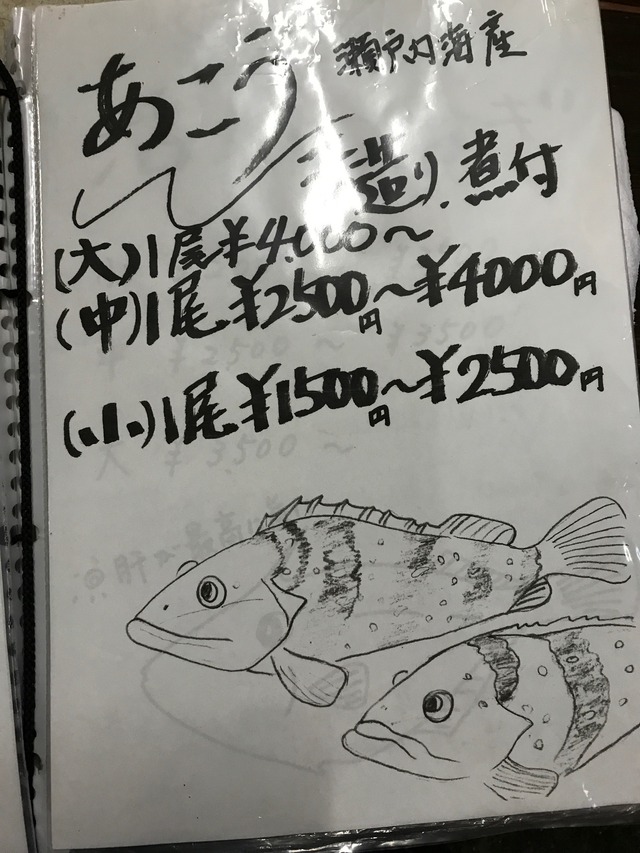 あこう 瀬戸内海産
造り. 煮付
(大)1尾¥4.000〜
(中)1尾¥2500円〜¥4000円
(小)1尾¥1500円〜¥2500円
¥2500 〜 ¥3500
大 ¥3.500 〜